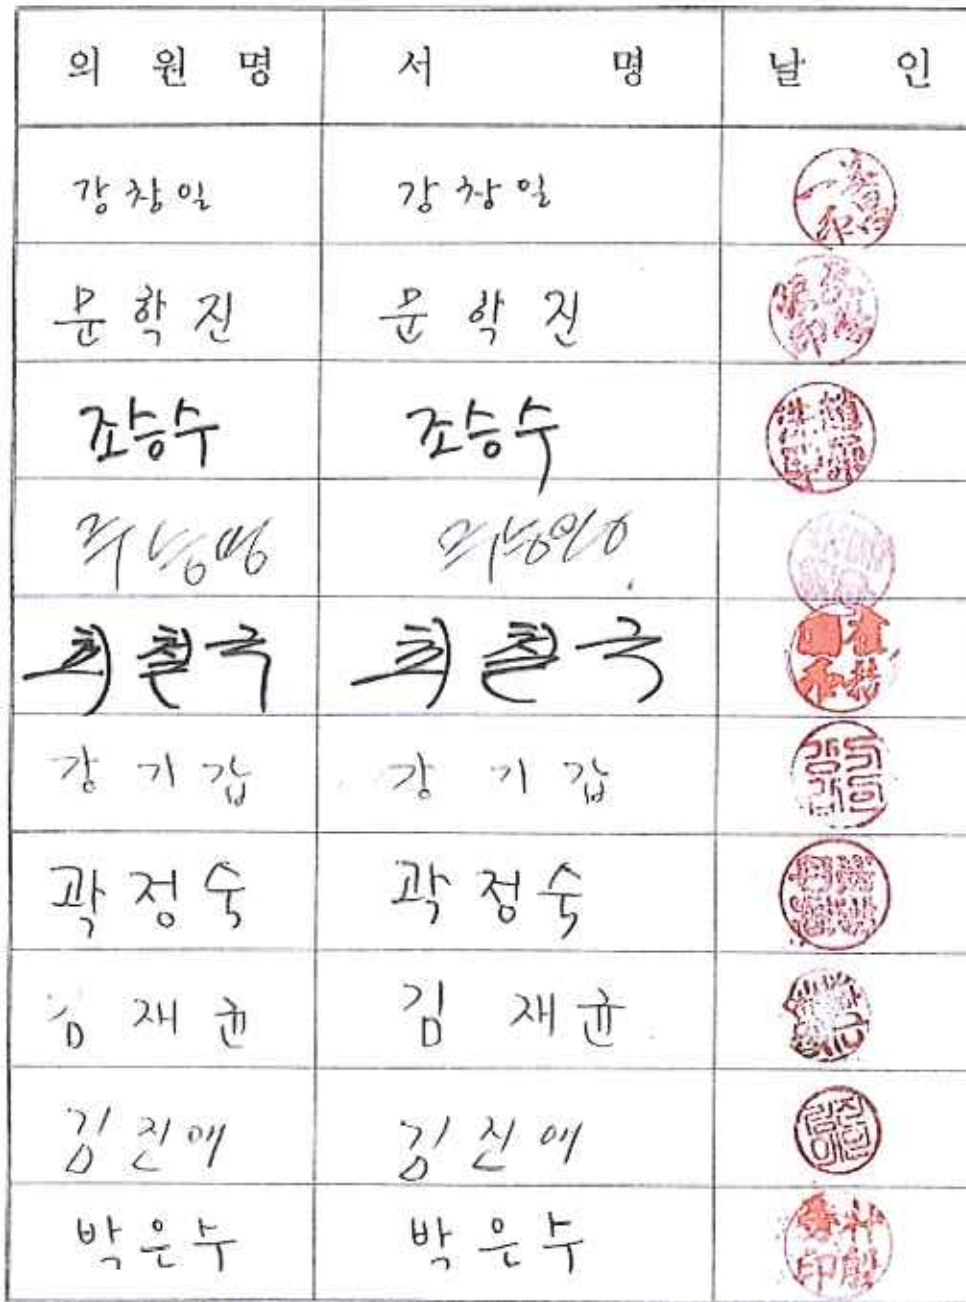 의 원 명 서 명 날 인
강창일 강창일
문학진 문학진
조승수 조승수
최철국 최철국
강기갑 강기갑
곽정숙 곽정숙
김재균 김재균
김진애 김진애
박은수 박은수